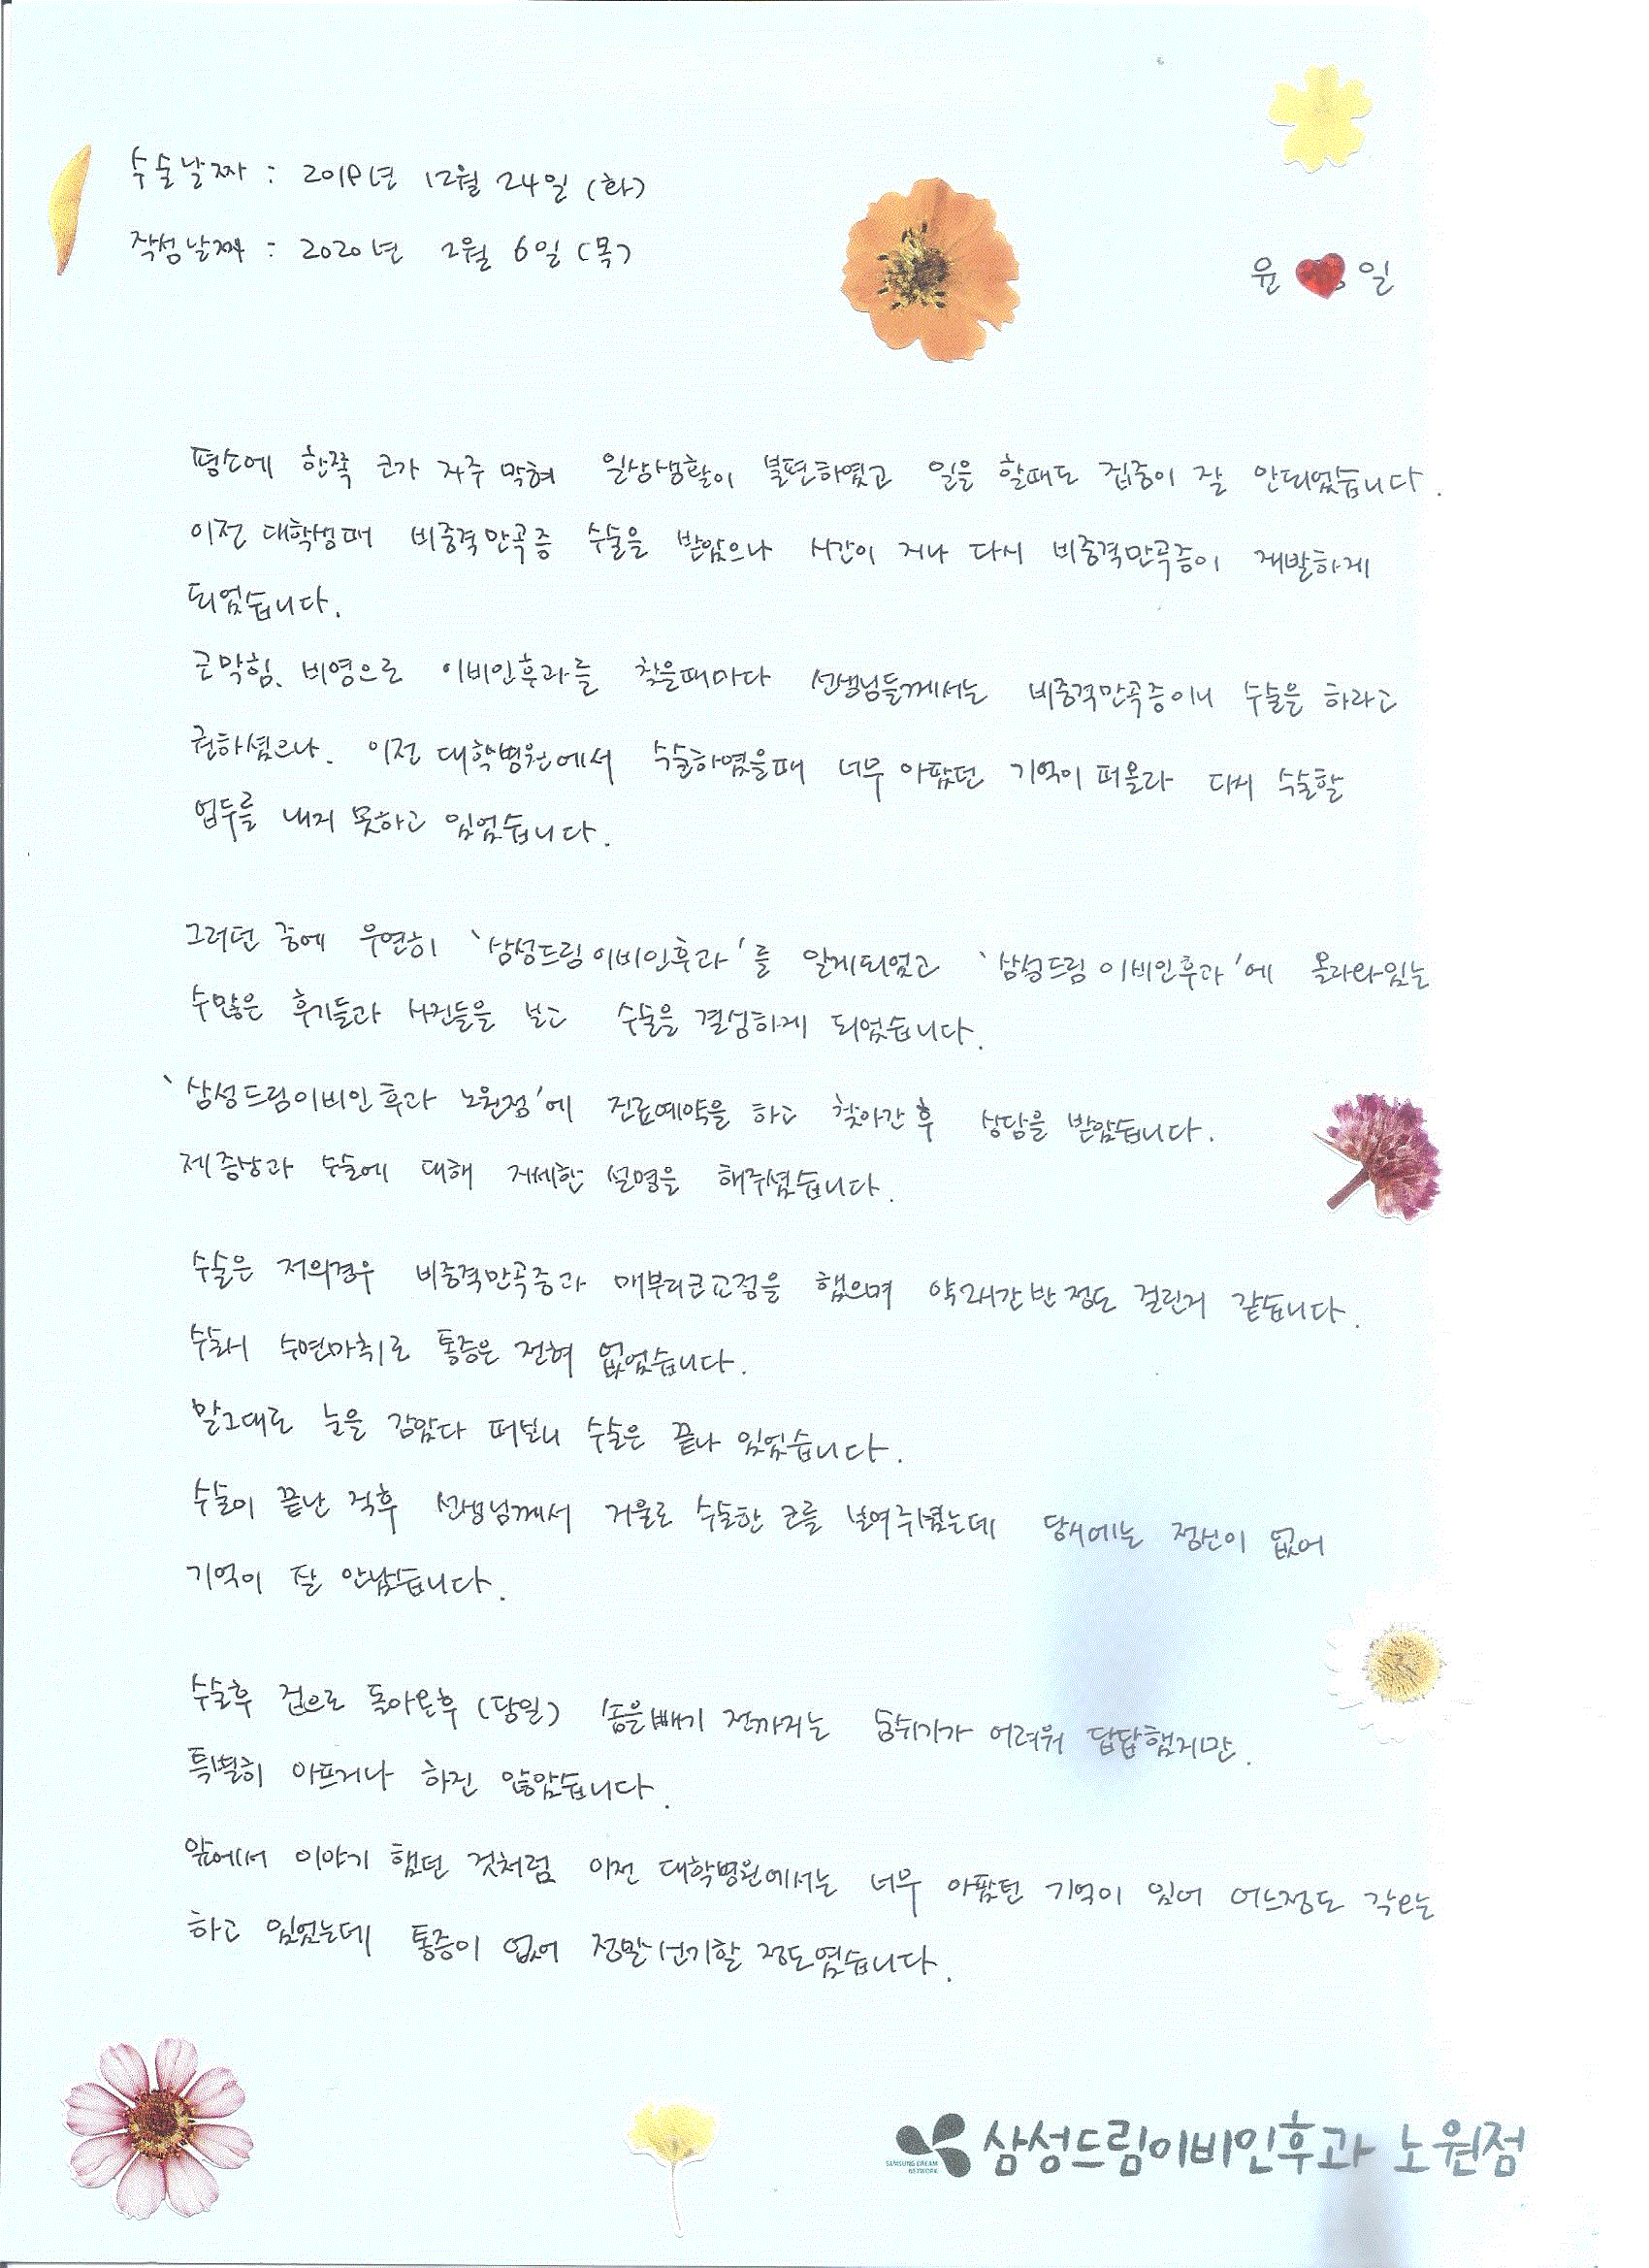 수술날짜 : 2019년 12월 24일 (화)
작성날짜 : 2020년 2월 6일 (목)
윤 일
평소에 한쪽 코가 자주 막혀 일상생활이 불편하였고 일을 할때도 집중이 잘 안되었습니다.
이전 대학생때 비중격만곡증 수술을 받았으나 시간이 지나 다시 비중격만곡증이 재발하게
되었습니다.
코막힘, 비염으로 이비인후과를 찾을때마다 선생님들께서는 비중격만곡증이니 수술을 하라고
권하셨으나, 이전 대학병원에서 수술하였을때 너무 아팠던 기억이 떠올라 다시 수술할
엄두를 내지 못하고 있었습니다.
그러던 중에 우연히 '삼성드림이비인후과'를 알게되었고 '삼성드림이비인후과'에 올라와있는
수많은 후기들과 사진들을 보고 수술을 결심하게 되었습니다.
'삼성드림이비인후과 노원점'에 진료예약을 하고 찾아간 후 상담을 받았습니다.
제 증상과 수술에 대해 자세한 설명을 해주셨습니다.
수술은 저의경우 비중격만곡증과 매부리코교정을 했으며 약2시간반 정도 걸린거 같습니다.
수술시 수면마취로 통증은 전혀 없었습니다.
말그대로 눈을 감았다 떠보니 수술은 끝나 있었습니다.
수술이 끝난 직후 선생님께서 거울로 수술한 코를 보여주셨는데 당시에는 정신이 없어
기억이 잘 안났습니다.
수술후 집으로 돌아온후 (당일) 솜을빼기 전까지는 숨쉬기가 어려워 답답했지만,
특별히 아프거나 하진 않았습니다.
앞에서 이야기 했던 것처럼 이전 대학병원에서는 너무 아팠던 기억이 있어 어느정도 각오는
하고 있었는데 통증이 없어 정말신기할 정도였습니다.
SAMSUNG DREAM
NETWORK
삼성드림이비인후과 노원점